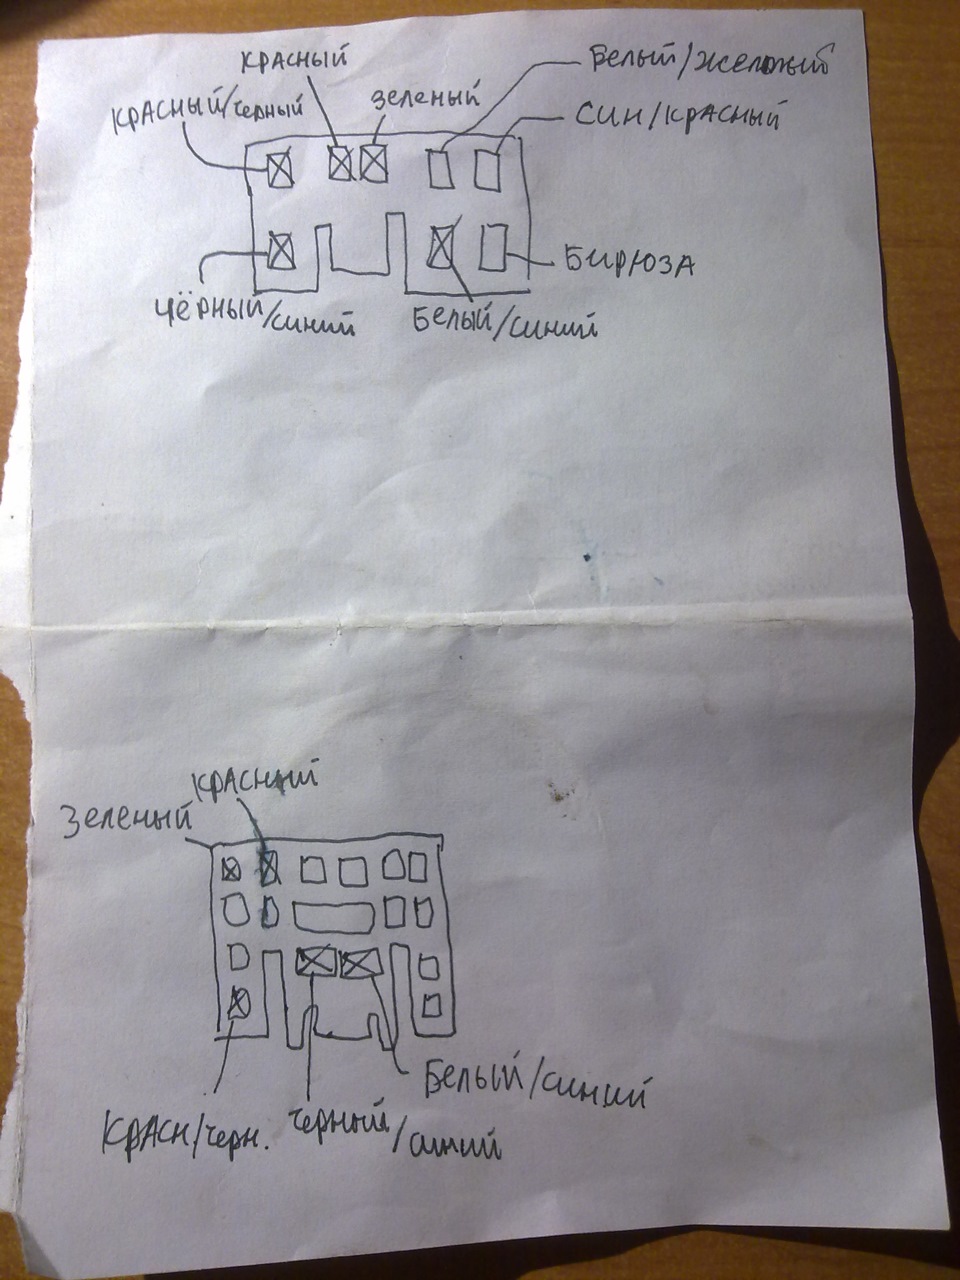 КРАСНЫЙ
БЕЛЫЙ/ЖЕЛТЫЙ
КРАСНЫЙ/ЧЕРНЫЙ
ЗЕЛЕНЫЙ
СИН/КРАСНЫЙ
БИРЮЗА
ЧЁРНЫЙ/СИНИЙ
БЕЛЫЙ/СИНИЙ
КРАСНЫЙ
ЗЕЛЕНЫЙ
БЕЛЫЙ/СИНИЙ
КРАСН/ЧЕРН.
ЧЕРНЫЙ/СИНИЙ